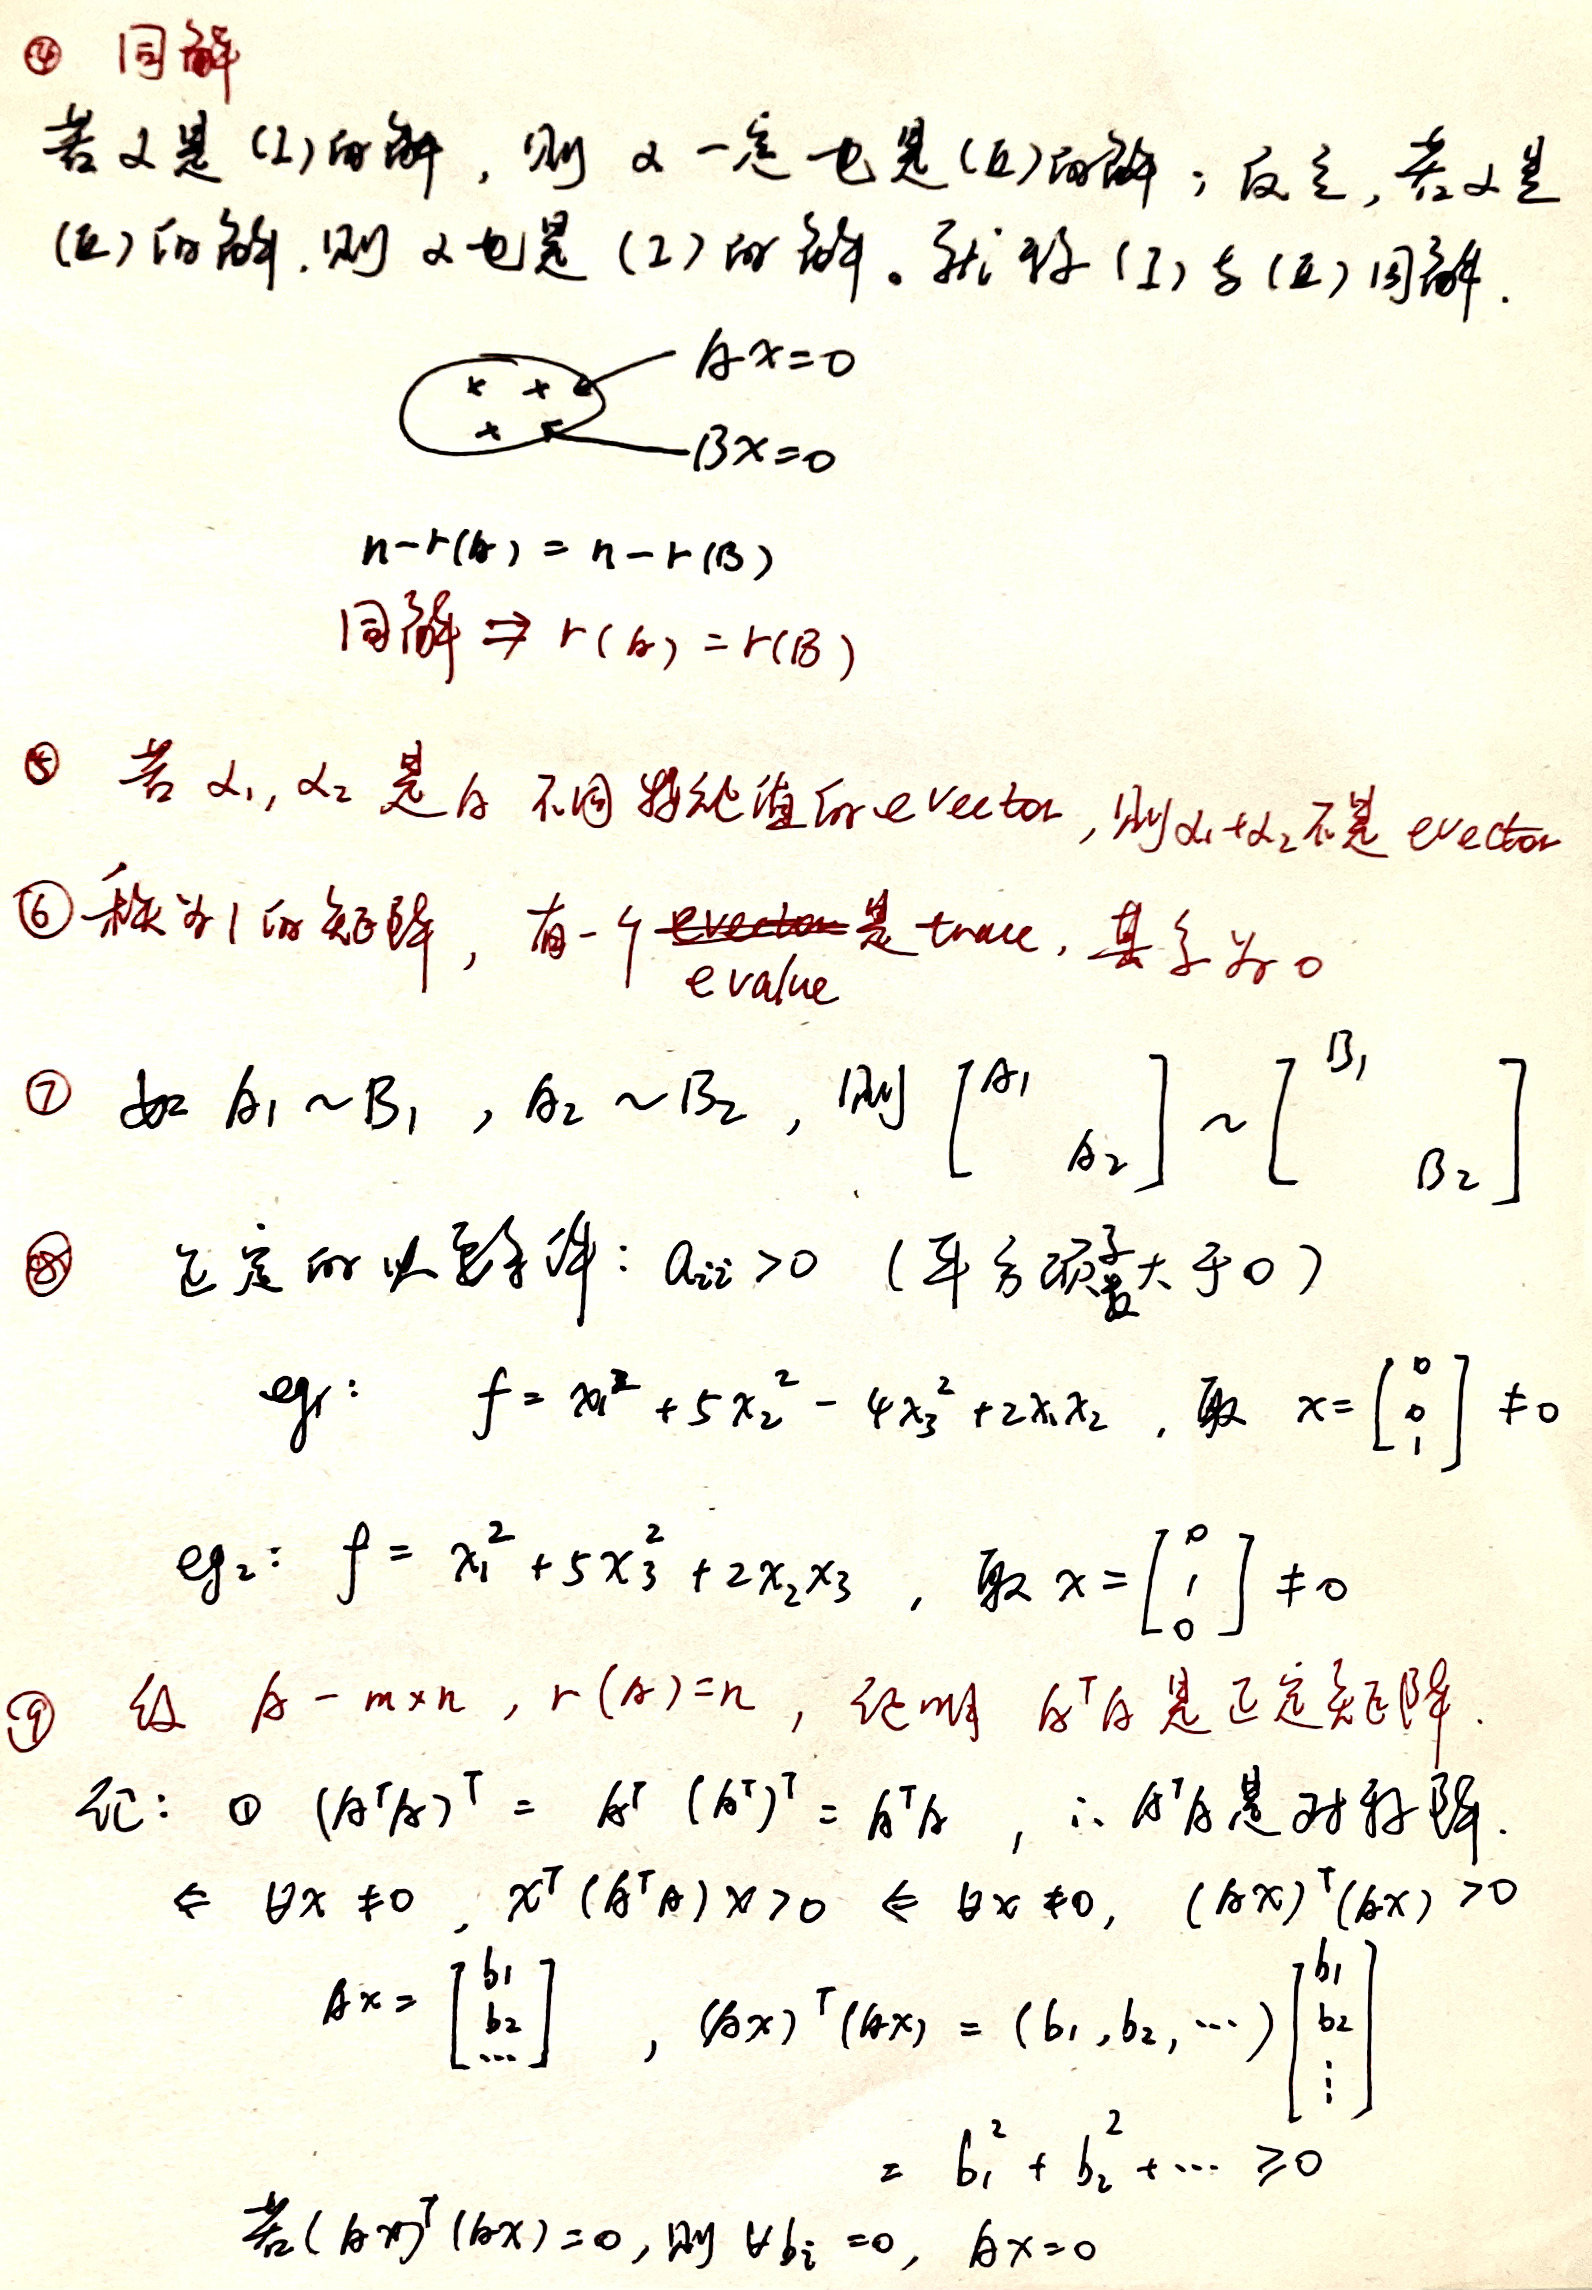 ④ 同解
若α是(I)的解,则 α一定也是(II)的解;反之,若α是
(II)的解,则 α也是(I)的解。就称(I)与(II)同解.
Ax=0
Bx=0
n-r(A)=n-r(B)
同解 ⇒ r(A)=r(B)
⑤ 若 α₁,α₂ 是A 不同特征值的evector,则α₁+α₂不是 evector
⑥ 秩为1的矩阵,有一个 是 trace,其余为0
evalue
⑦ 如 A₁~B₁,A₂~B₂,则 [A₁ A₂] ~ [B₁ B₂]
⑧ 正定的必要条件: aᵢᵢ>0 (平方项系数大于0)
eg₁: f=x₁²+5x₂²-4x₃²+2x₁x₂,取 x=[0 0 1]≠0
eg₂: f=x₁²+5x₃²+2x₂x₃,取 x=[0 1 0]≠0
⑨ 设 A-m×n,r(A)=n,证明 AᵀA是正定矩阵.
证: ① (AᵀA)ᵀ=Aᵀ(Aᵀ)ᵀ=AᵀA,∴AᵀA是对称阵.
⇐ ∀x≠0,xᵀ(AᵀA)x>0 ⇐ ∀x≠0,(Ax)ᵀ(Ax)>0
Ax=[b₁ b₂ ⋯],(Ax)ᵀ(Ax)=(b₁,b₂,⋯)[b₁ b₂ ⋮]
=b₁²+b₂²+⋯≥0
若(Ax)ᵀ(Ax)=0,则∀bᵢ=0,Ax=0